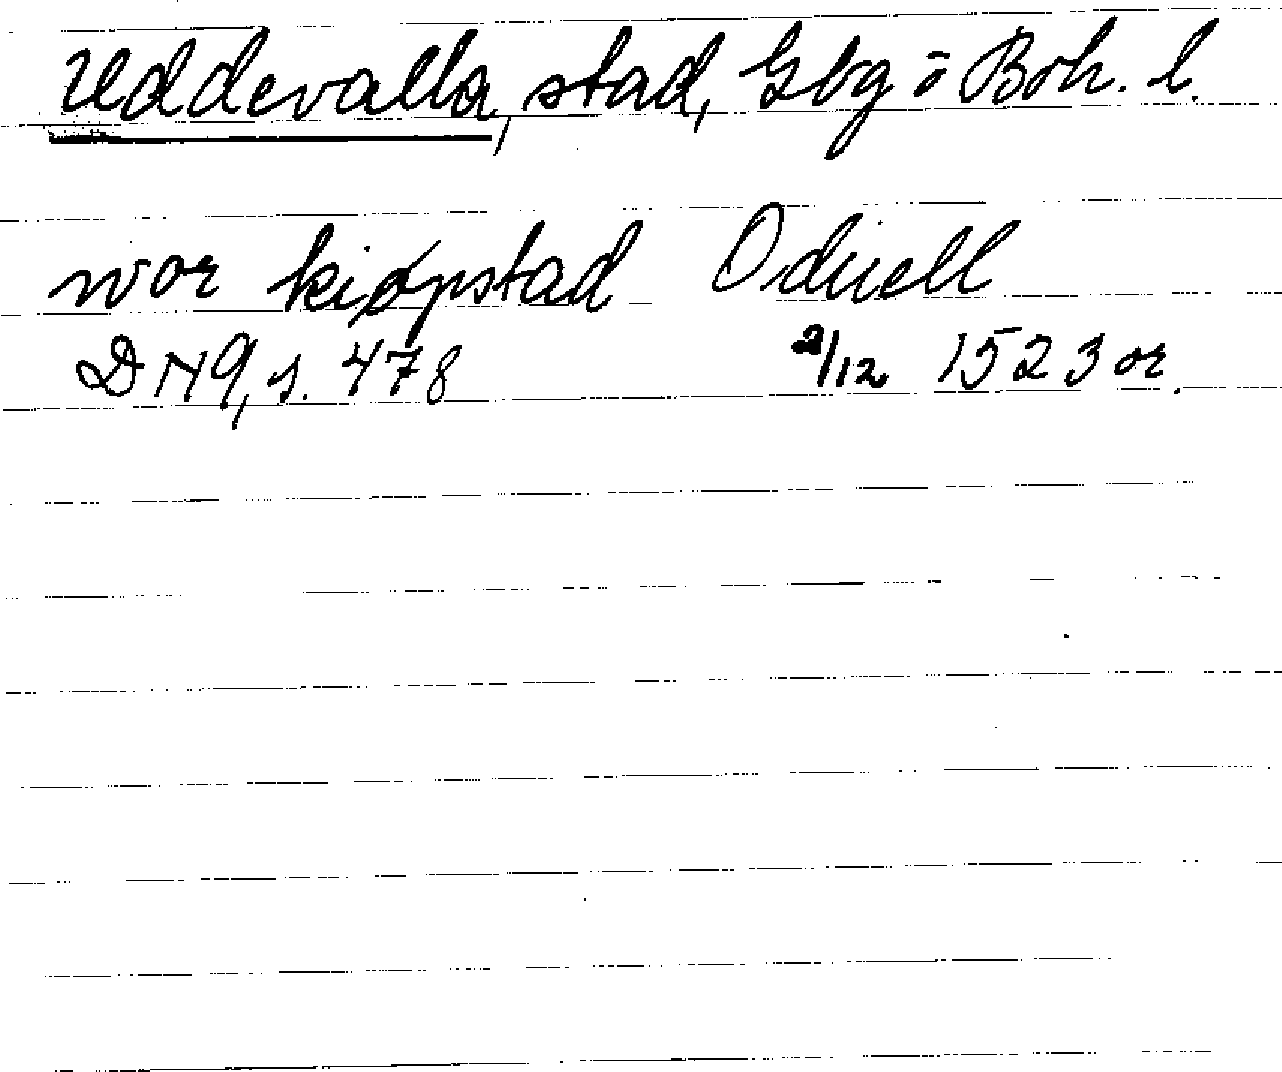 Uddevalla, stad, Gbg o Boh. l.
wor kiøpstad Oduell
DN 9, s. 478 2/12 1523 or.